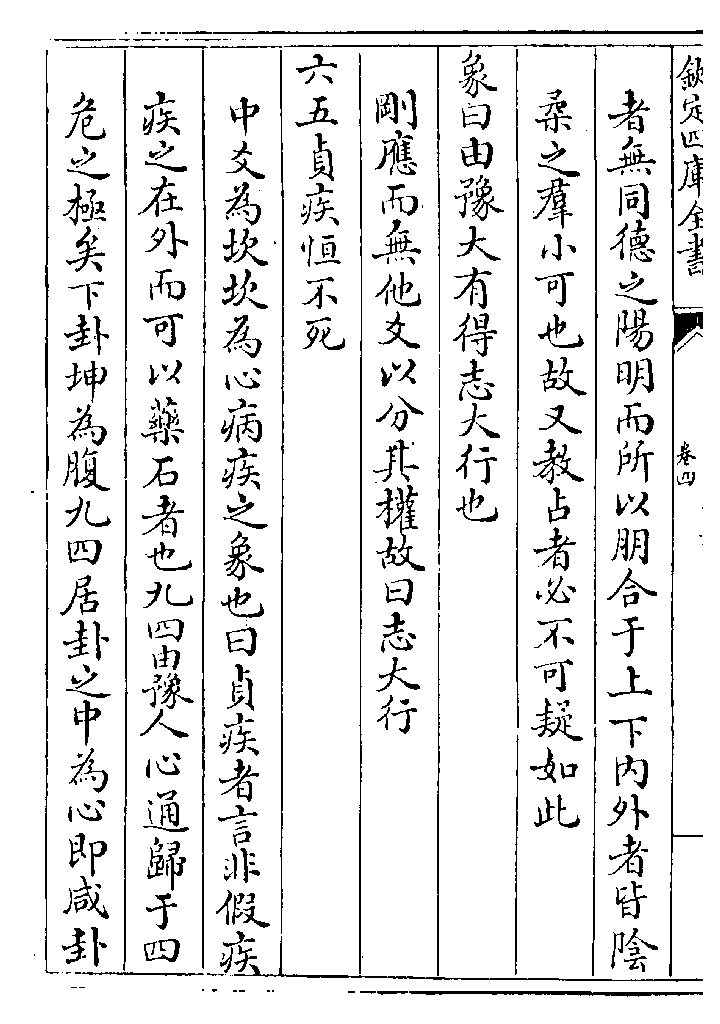 欽定四庫全書
卷四
者無同德之陽明而所以朋合于上下内外者皆陰
柔之羣小可也故又教占者必不可疑如此
象曰由豫大有得志大行也
剛應而無他爻以分其權故曰志大行
六五貞疾恒不死
中爻為坎坎為心病疾之象也曰貞疾者言非假疾
疾之在外而可以藥石者也九四由豫人心通歸于四
危之極矣下卦坤為腹九四居卦之中為心即咸卦